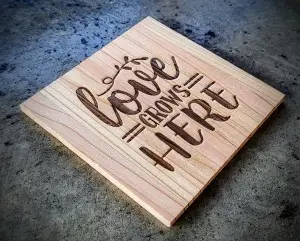 love
GROWS
HERE